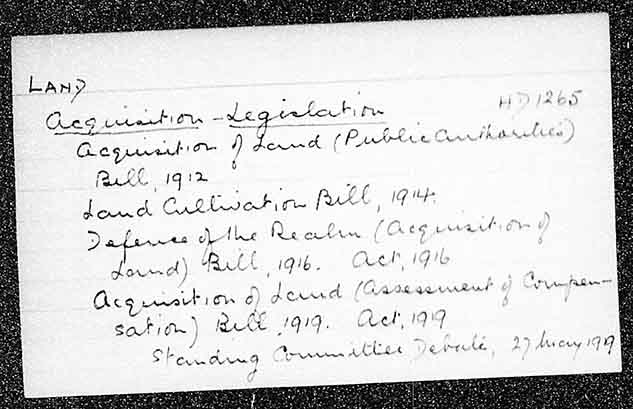 LAND
Acquisition - Legislation HD1265
Acquisition of Land (Public Authorities)
Bill, 1912
Land Cultivation Bill, 1914.
Defense of the Realm (Acquisition of
Land) Bill, 1916. Act, 1916
Acquisition of Land (Assessment of Compen-
sation) Bill, 1919. Act, 1919
Standing Committee Debate, 27 May 1919